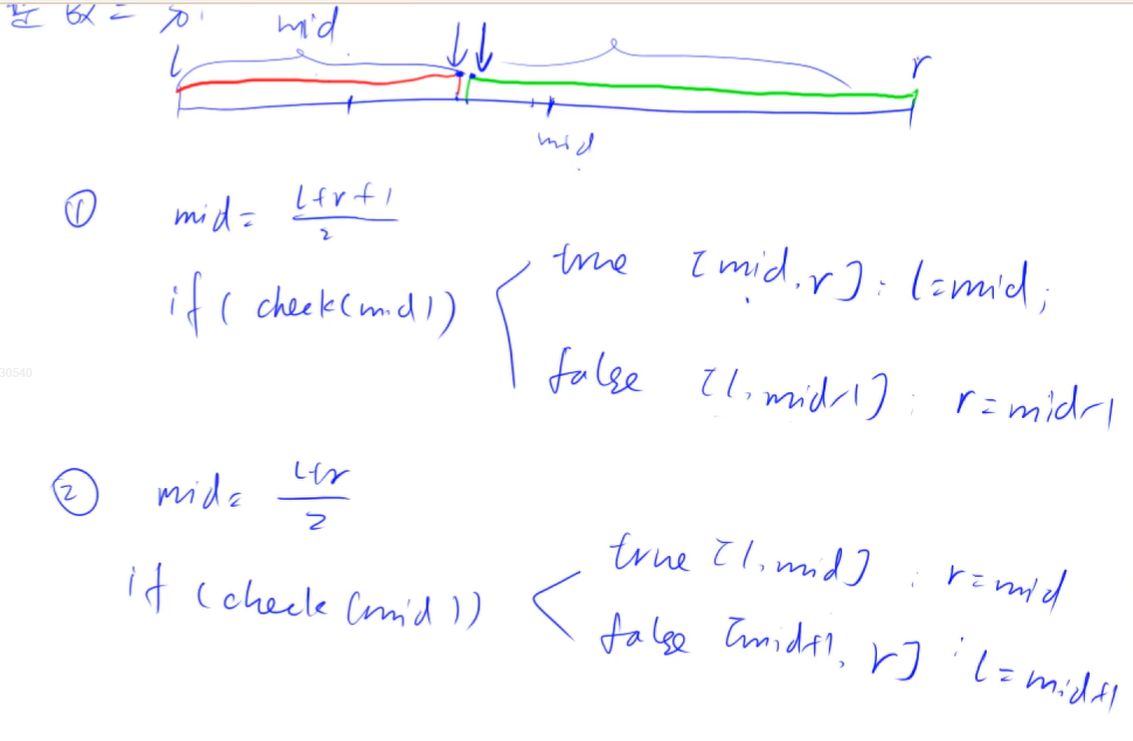 mid
l r
mid
① mid = (l+r+1)/2
if ( check(mid) )
true [mid, r] : l=mid;
false [l, mid-1] : r=mid-1
② mid = (l+r)/2
if ( check (mid) )
true [l, mid] : r=mid
false [mid+1, r] : l=mid+1
30540